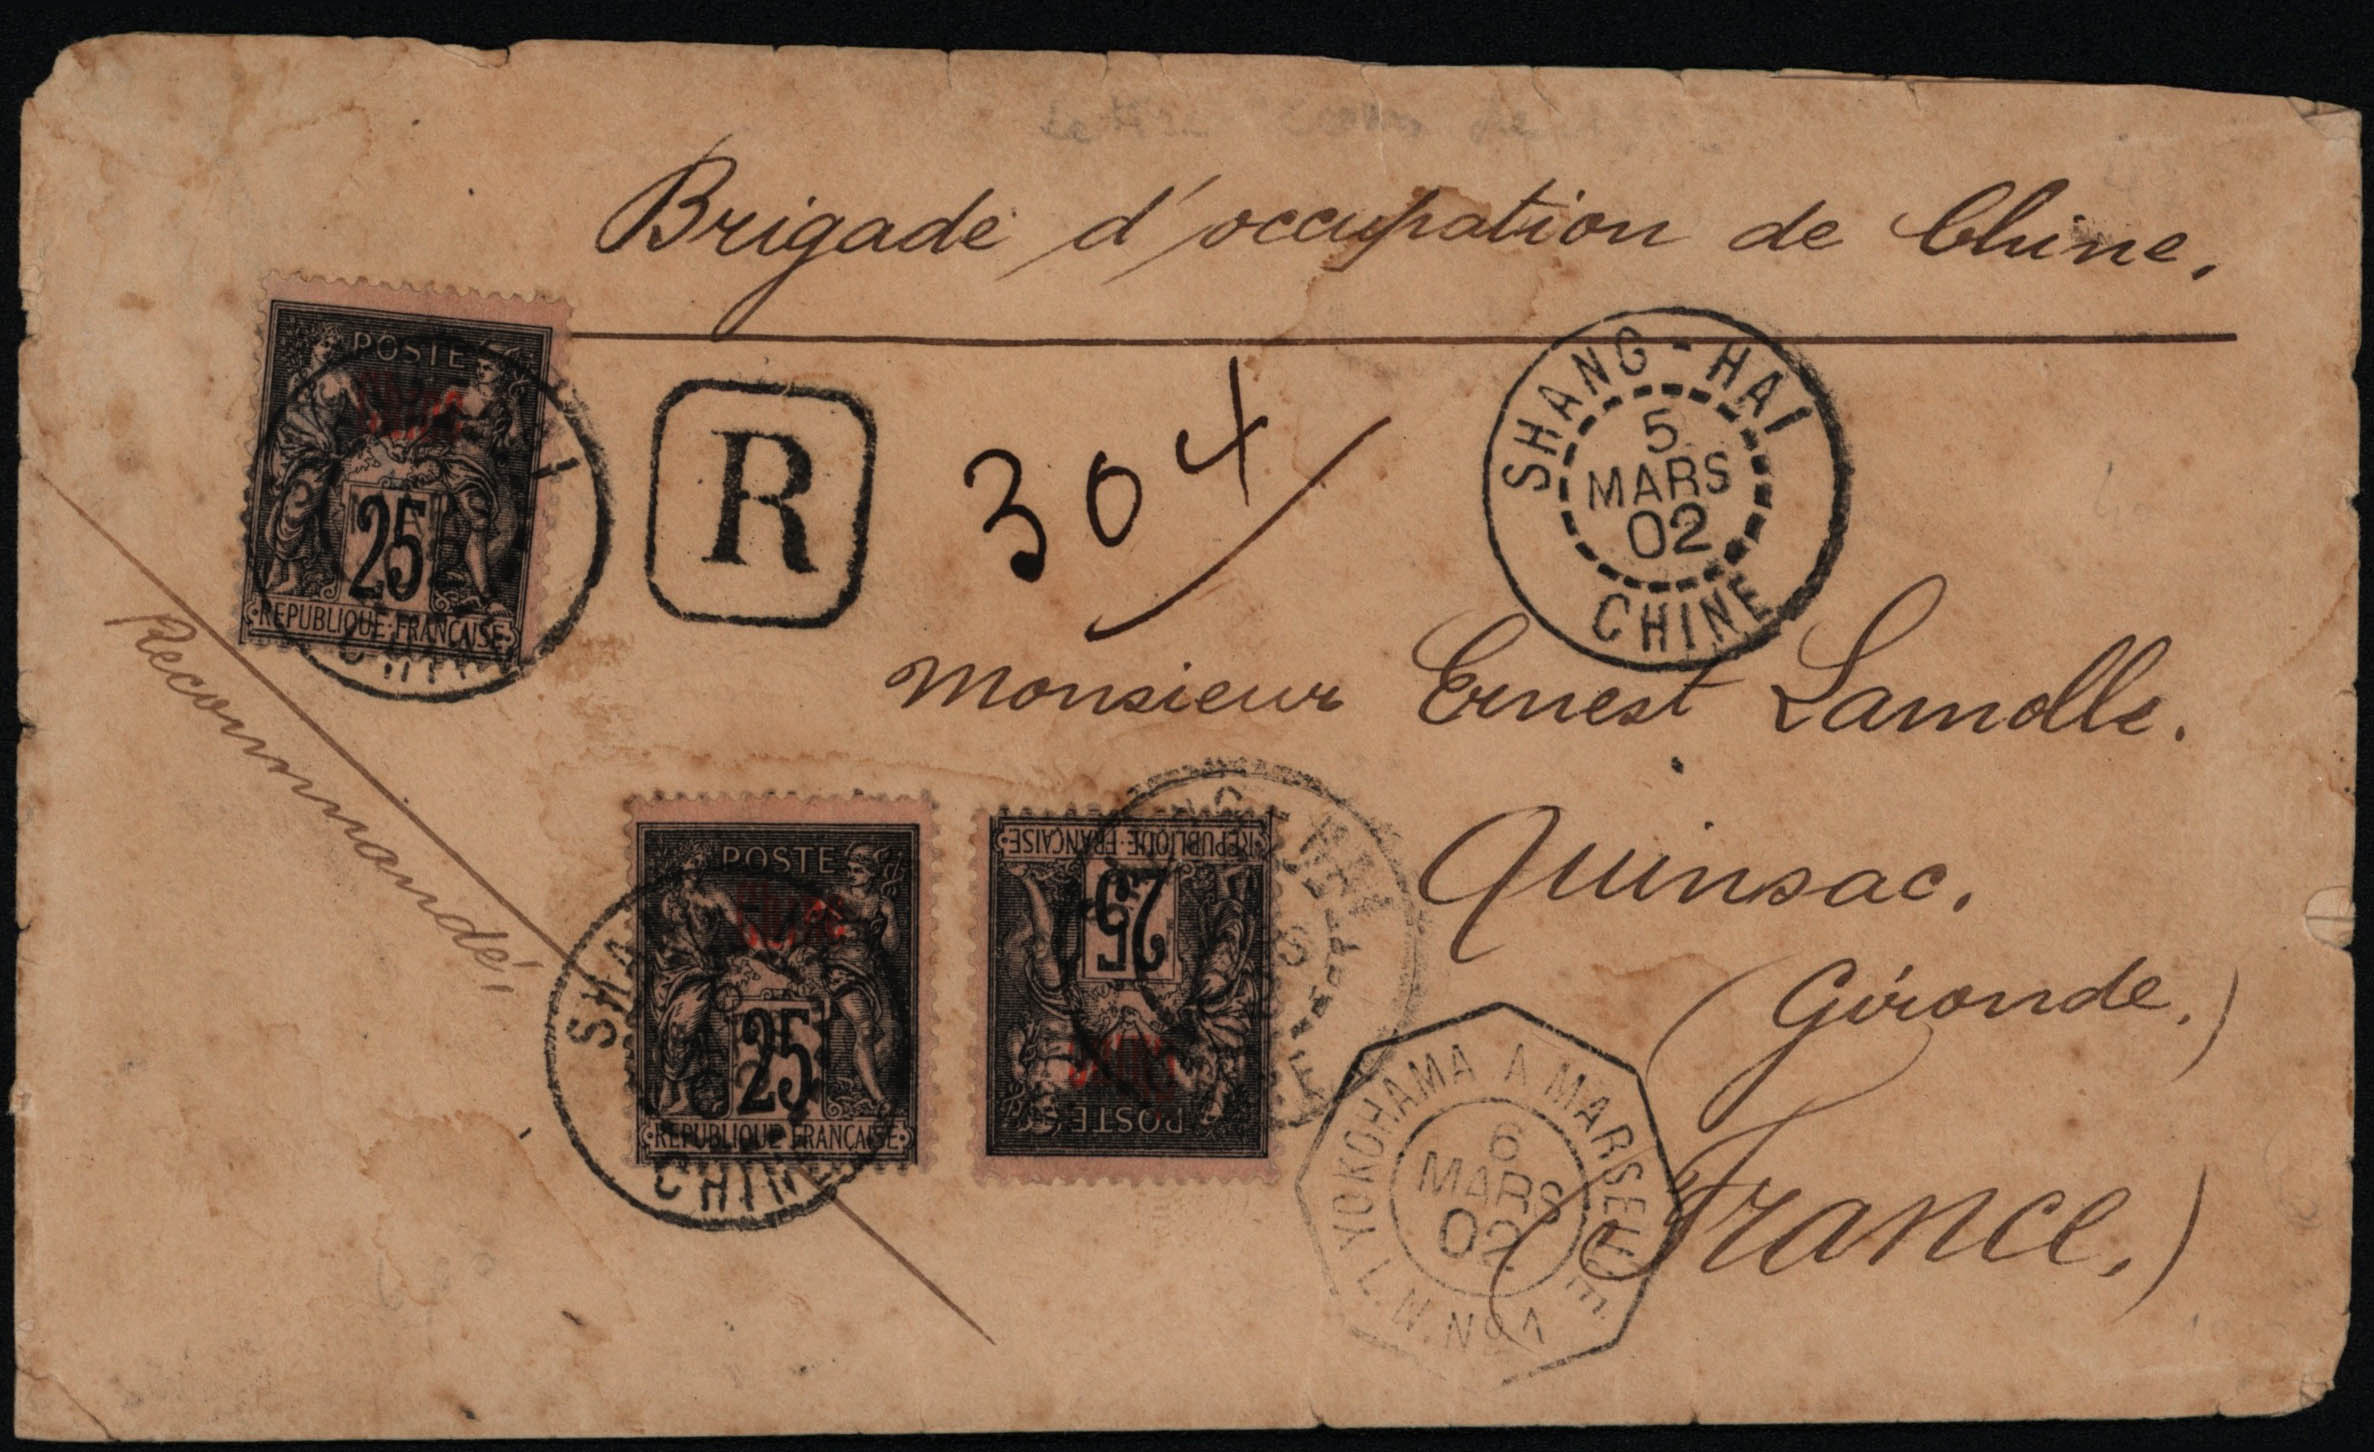 Brigade d'occupation de Chine.
POSTE
Chine
25
RÉPUBLIQUE FRANÇAISE
CHINE
R
304
SHANG-HAI
5
MARS
02
CHINE
Recommandé
Monsieur Ernest Lamolle.
Quinsac.
(Gironde.)
(France.)
POSTE
Chine
25
RÉPUBLIQUE FRANÇAISE
SHA
CHINE
POSTE
Chine
25
RÉPUBLIQUE FRANÇAISE
YOKOHAMA A MARSEILLE
6
MARS
02
L N Nº